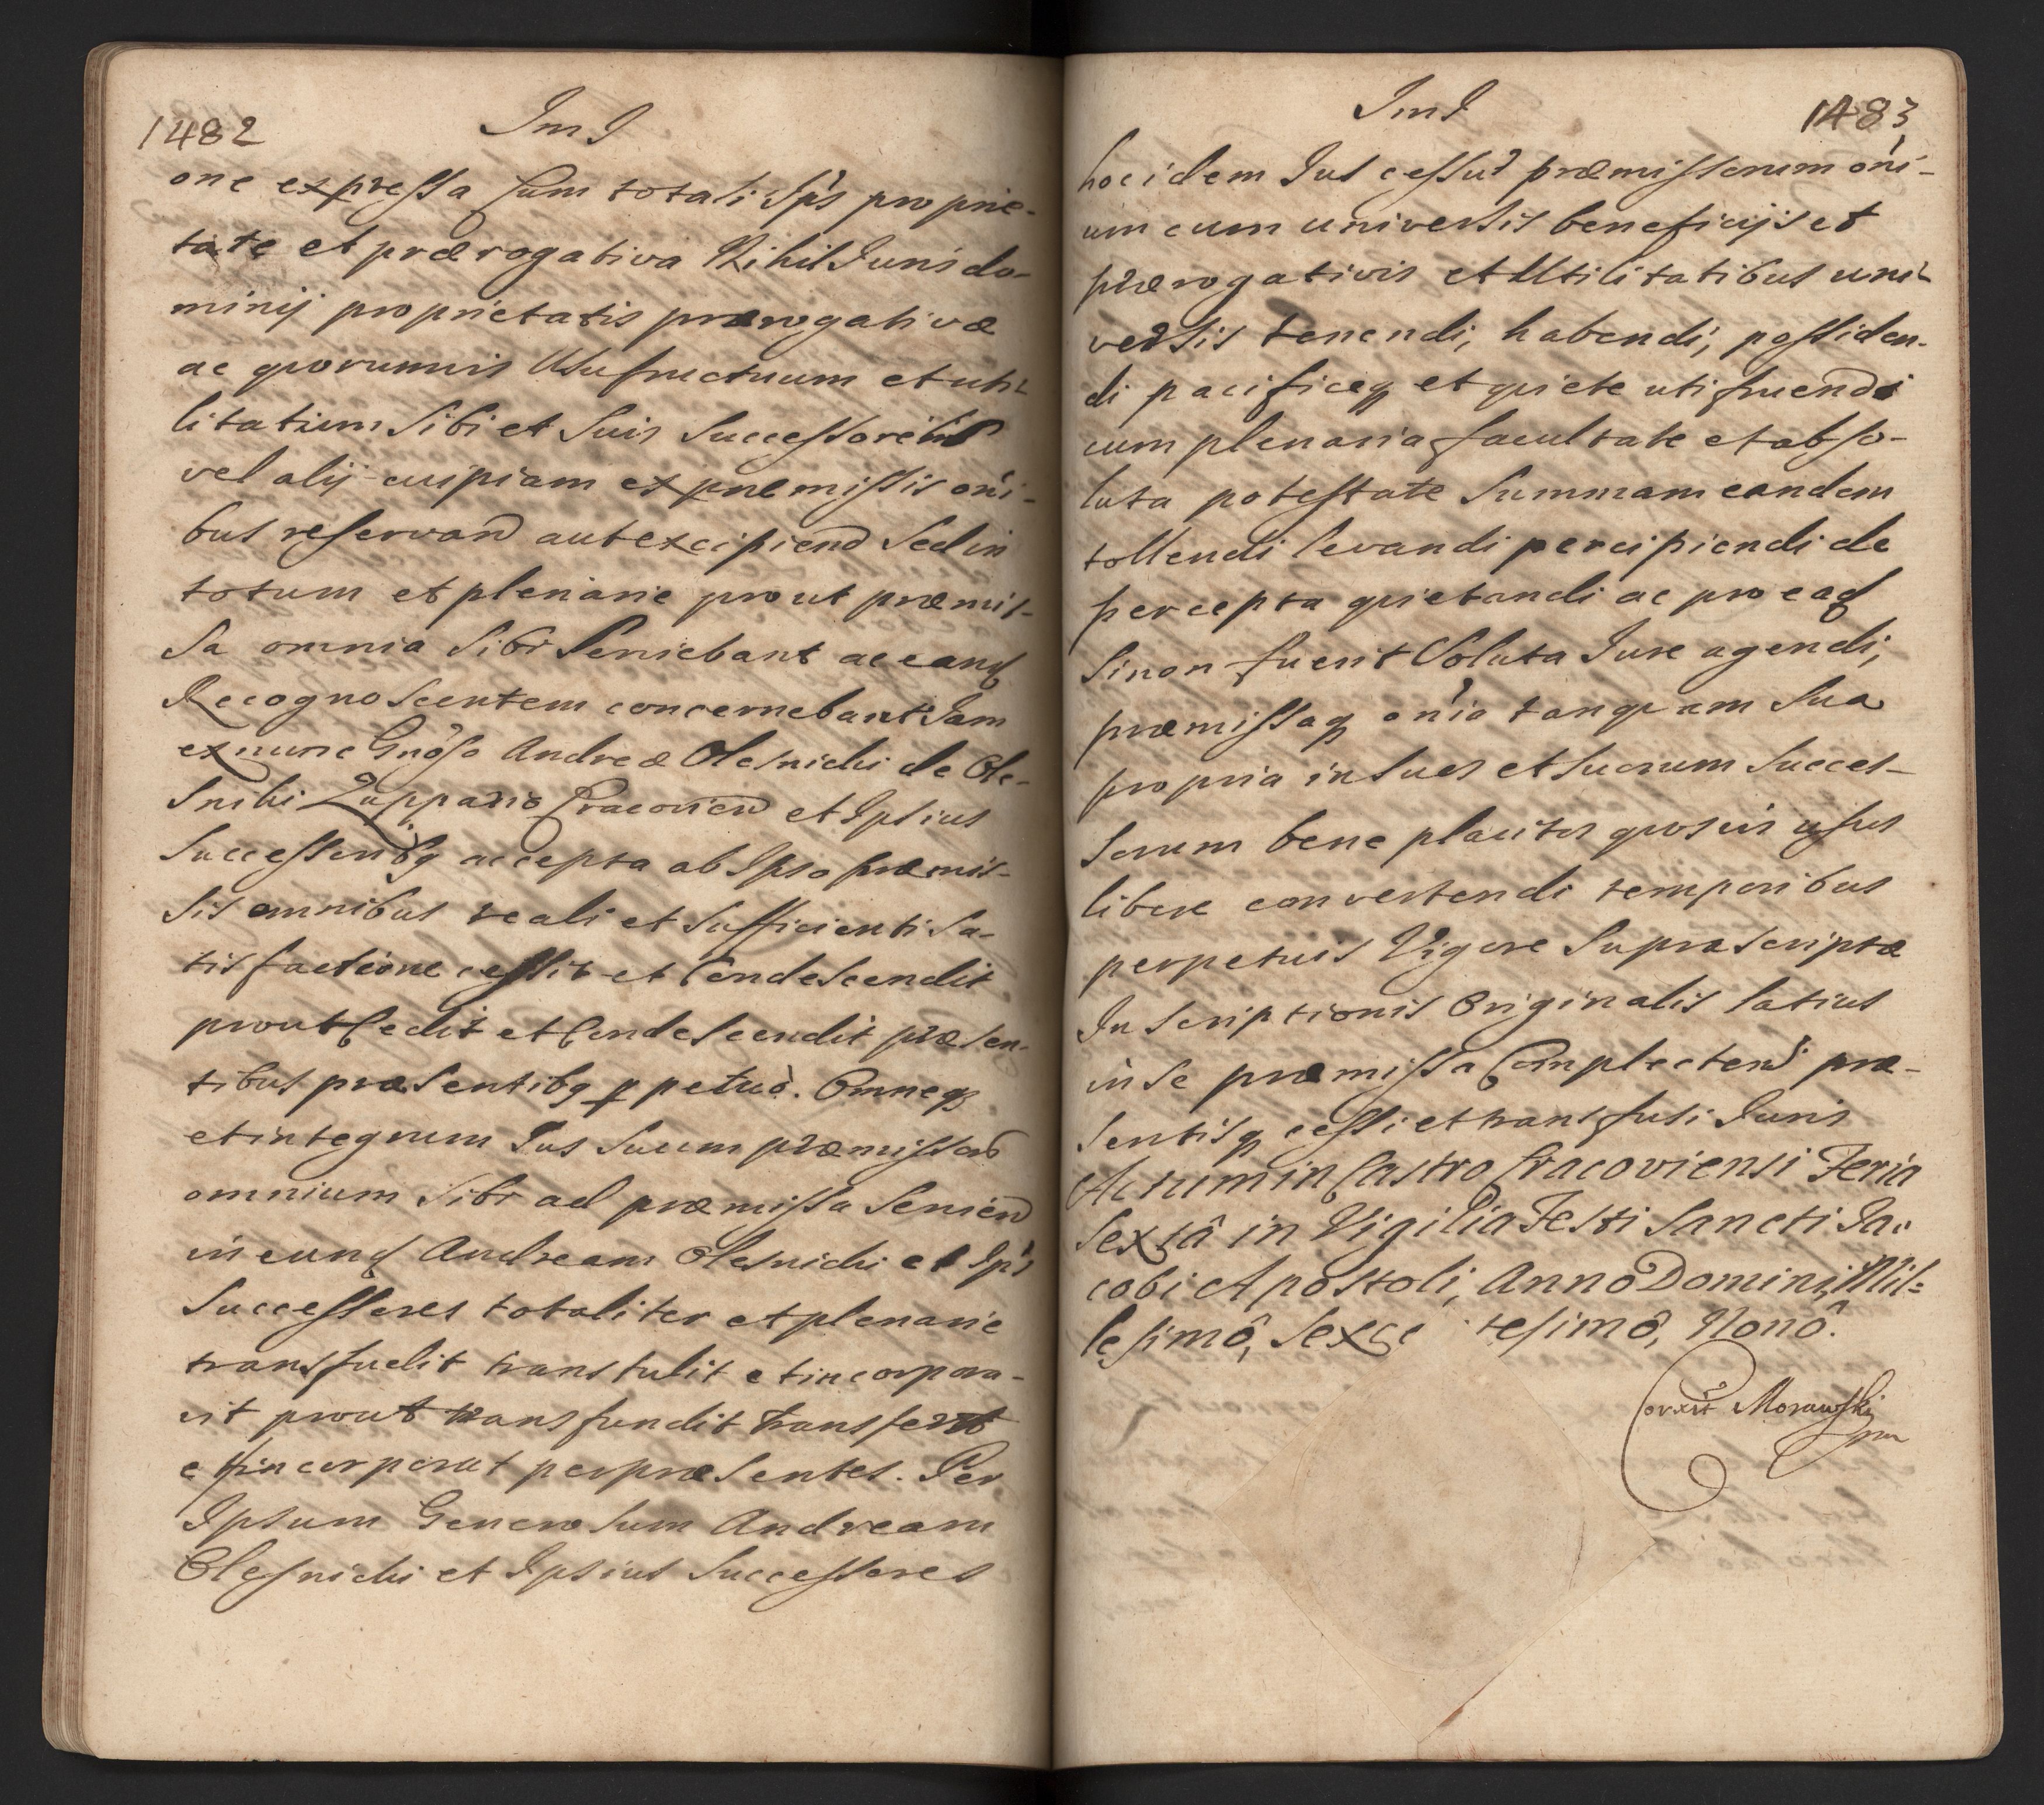 1482 Im I
one expressa Cum totali Ips proprie-
tate et prærogativa Nihil Juris do-
minij proprietatis prærogativæ
ac quorumvis Usufructuum et uti-
litatium Sibi et Suis Successoribus
vel alij cuipiam ex præmissis oni-
bus reservand aut excipiend Sed in
totum et plenarie prout præmis-
Sa omnia Sibi Serviebant ac eand
Recognoscentem concernebant Jam
ex nunc Gnoso Andreæ Olesnicki de Ole-
Sniki Zuppario Cracovien et Ipsius
Successoribq accepta ab Ipso præmis-
Sis omnibus reali et Sufficienti Sa-
tisfactione cessit et Condescendit
prout Cedit et Condescendit præsen-
tibus præsentibq ppetuò. Omneq
et integrum Jus Suum præmissor
omnium Sibi ad præmissa Servien
in eund Andream Olesnicki et Ips
Successores totaliter et plenarie
transfudit transtulit et incorpora-
vit prout transfundit transfert
et incorporat per præsentes. Per
Ipsum Generosum Andream
Olesnicki et Ipsius Successores
Im I 1483
hoc idem Jus cessu præmissorum oni-
um cum universis beneficijs et
prærogativis et Utilitatibus uni-
versis tenendi, habendi, possiden-
di pacificeq et quiete utifruendi
cum plenaria facultate et abso-
luta potestate Summam eandem
tollendi levandi percipiendi de
percepta quietandi ac pro ead
Si non fuerit Soluta Jure agendi,
præmissaq onia tanquam Sua
propria in Suos et Suorum Succes-
Sorum bene placitos quosvis usus
libere convertendi temporibus
perpetuis Vigore Suprascriptæ
Inscriptionis Originalis latius
in Se præmissa Complecten præ-
Sentisq cessi et transfusi Juris
Actum in Castro Cracoviensi Feria
Sextâ in Vigilia Festi Sancti Ja-
cobi Apostoli, Anno Domini, Mil=
lesimô, Sexce tesimô, Nonô.
Morawski